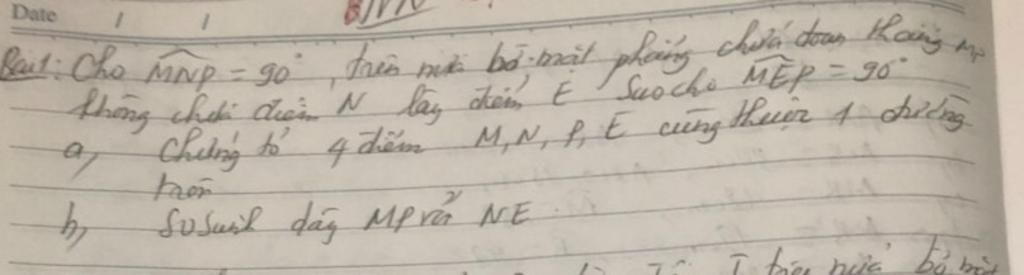 Date / /
Bài 1: Cho MNP = 90°, trên nửa bờ mặt phẳng chứa đoạn thẳng MP
không chứa điểm N lấy điểm E sao cho MEP = 90°
a, Chứng tỏ 4 điểm M, N, P, E cùng thuộc 1 đường
tròn
b, So sánh dây MP với NE